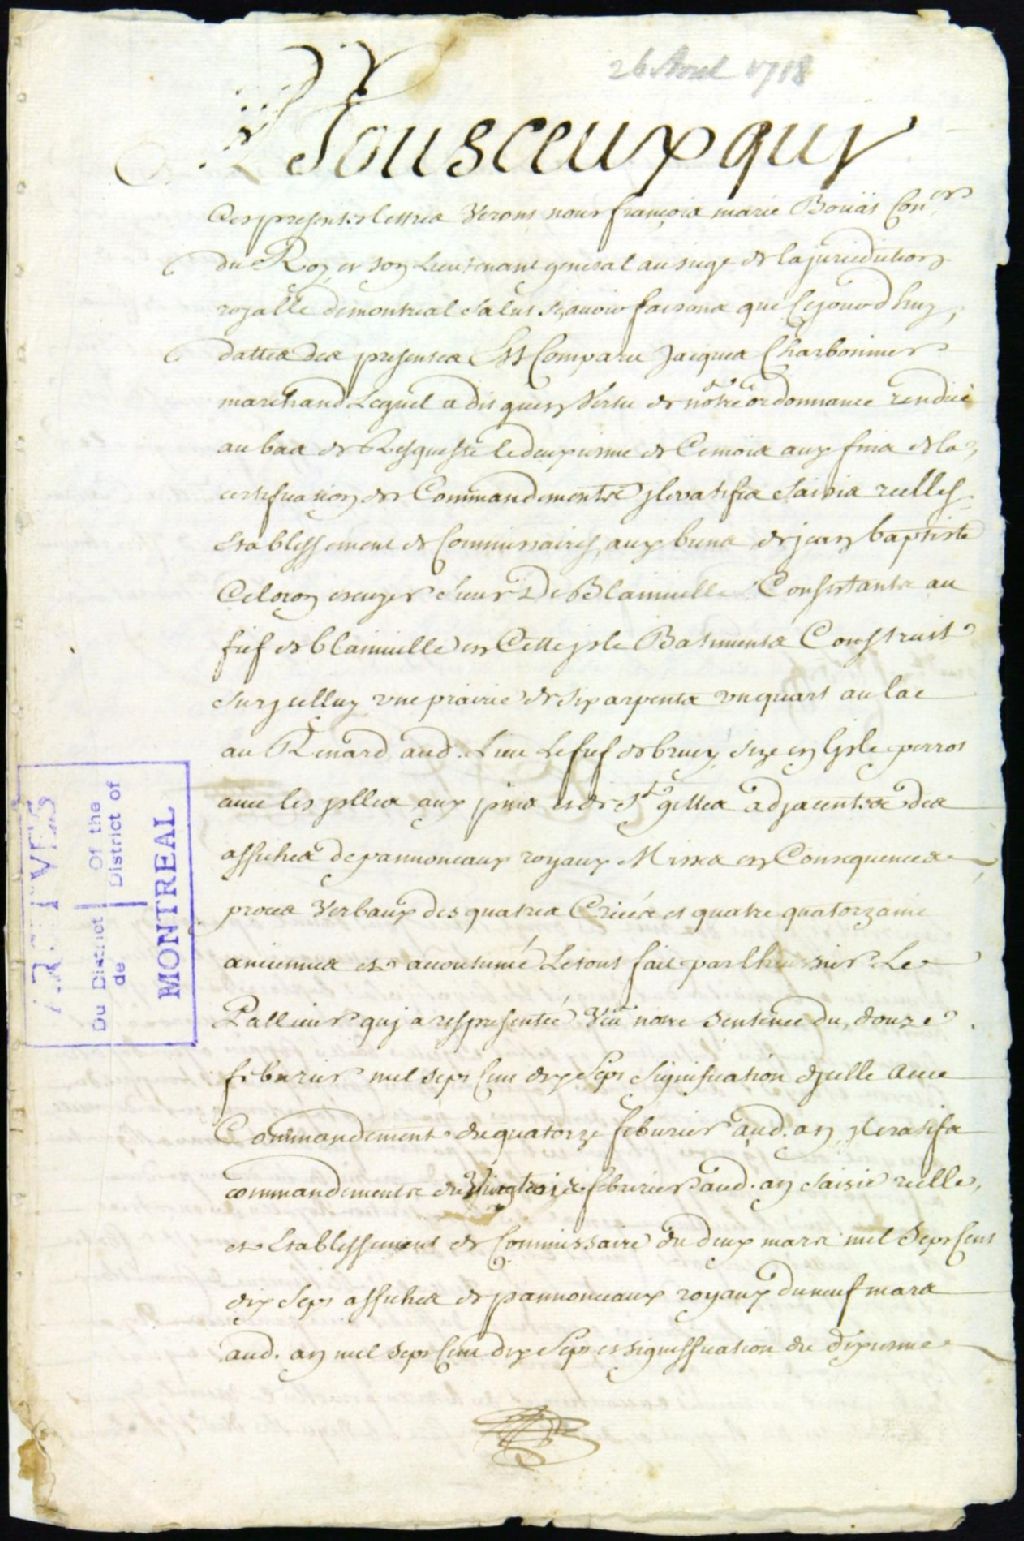 26 Avril 1718
A Tous ceux quy
Ces presentes lettres Verons nous françois marie Boüat Con.er
du Roy et son Lieutenant general au siege de la jurisdiction
royalle de montreal Salut sçauoir faisons que Cejourd'huy,
dattes des presentes Est Comparu Jacques Charbonnier
marchand Lequel a dit quen Vertu de nôtre ordonnance rendüe
au bas de Resqueste le deuxieme de Cemois aux fins de la
certification des Commandements jteratifs Saisies réelles
Etablissement de Commissaires, aux biens de jean baptiste
Celoron escuyer Sieur De Blainuille Consistants au
fief de blainuille en Cette jsle Batiments Construit
sur jcelluy vne prairie de six arpents vnquart au lac
au Renard aud. Lieu Le fief de bruey size en Lisle perros
auec les jslles aux pins et de St gilles adjacentes des
affiches de pannonceaux royaux Mises en Consequences
proces Verbaux des quatres Criées et quatre quatorzaine
anciennes et accoutumé Letout fait par Lhuissier Le
Pallieur quj a respresentée Veu notre Sentence du, douze
feburier mil sept Cent dix Sept Signification djcelle auec
Commandement du quatorze feburier aud. an jteratifs
commandements du Vingtrois feburier aud. an saisie réelle,
et Etablissement de Commissaire du deux mars mil Sept Cent
dix Sept affiches de pannonceaux royaux du neuf mars
aud. an mil Sept Cent dix Sept et signiffication du dixieme
ARCHIVES
Du District | Of the
de | District of
MONTREAL